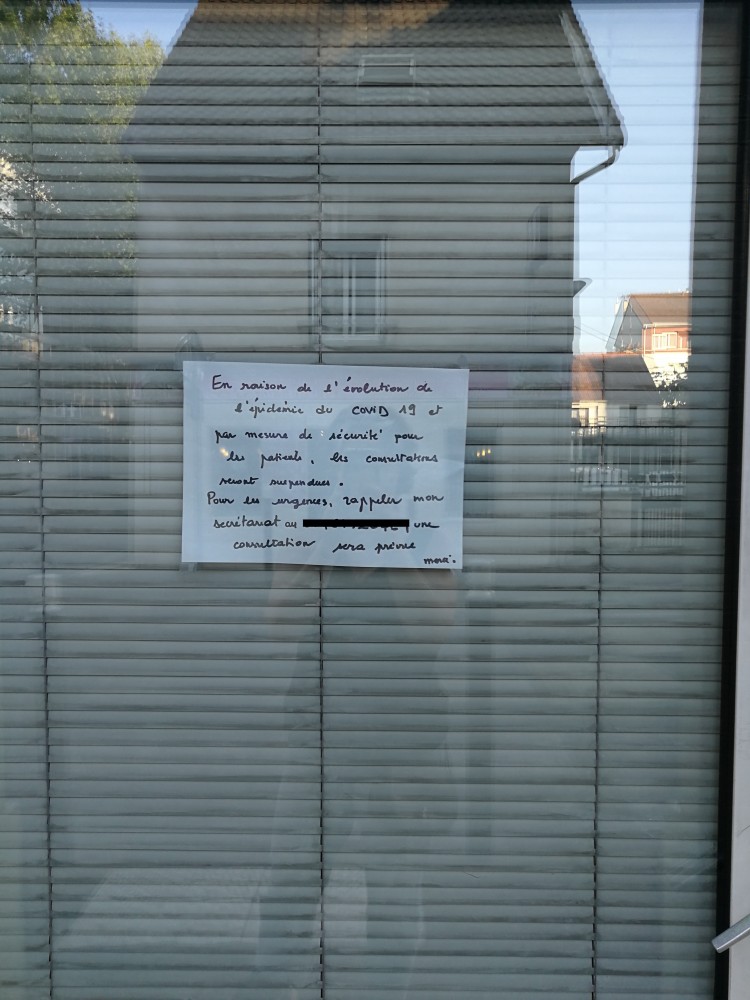 En raison de l'évolution de
l'épidémie du COVID 19 et
par mesure de sécurité pour
les patients, les consultations
seront suspendues.
Pour les urgences, rappeler mon
secrétariat au une
consultation sera prévue
merci.